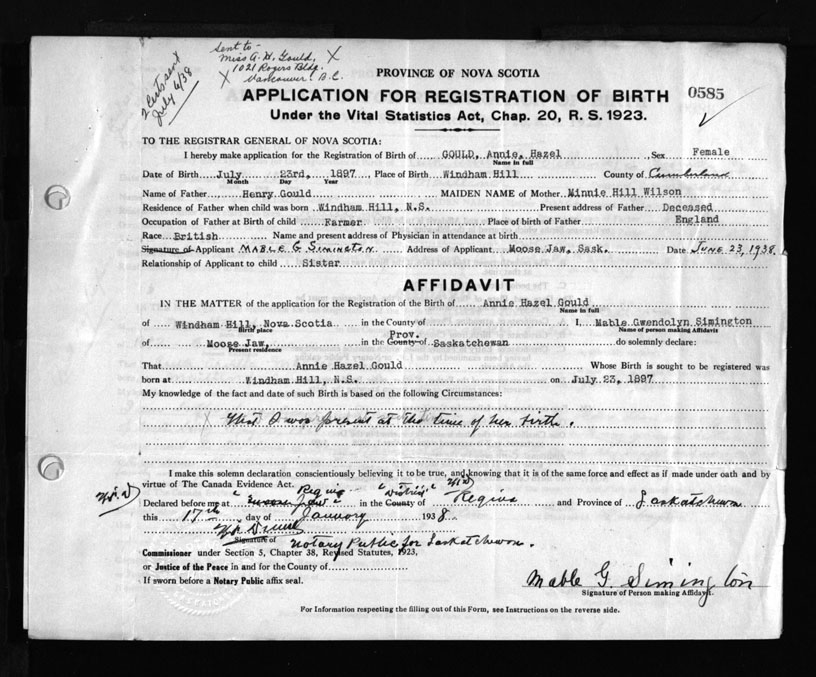 Sent to -
Miss A. H. Gould, X
1021 Rogers Bldg.
X Vancouver, B.C.
2 Certs sent
July 4/38
PROVINCE OF NOVA SCOTIA
APPLICATION FOR REGISTRATION OF BIRTH 0585
Under the Vital Statistics Act, Chap. 20, R. S. 1923.
TO THE REGISTRAR GENERAL OF NOVA SCOTIA:
I hereby make application for the Registration of Birth of GOULD, Annie, Hazel Sex Female
Name in full
Date of Birth July 23rd, 1897 Place of Birth Windham Hill County of Cumberland
Month Day Year
Name of Father Henry Gould MAIDEN NAME of Mother Minnie Hill Wilson
Residence of Father when child was born Windham Hill, N.S. Present address of Father Deceased
Occupation of Father at Birth of child Farmer Place of birth of Father England
Race British Name and present address of Physician in attendance at birth
Signature of Applicant MABLE G SIMINGTON Address of Applicant Moose Jaw, Sask. Date JUNE 23, 1938.
Relationship of Applicant to child Sister
AFFIDAVIT
IN THE MATTER of the application for the Registration of the Birth of Annie Hazel Gould
Name in full
of Windham Hill, Nova Scotia in the County of I, Mable Gwendolyn Simington
Birth place Name of person making Affidavit
Prov.
of Moose Jaw, in the County of Saskatchewan do solemnly declare:
Present residence
That Annie Hazel Gould Whose Birth is sought to be registered was
born at Windham Hill, N.S. on July 23, 1897
My knowledge of the fact and date of such Birth is based on the following Circumstances:
X That I was present at the time of her birth.
I make this solemn declaration conscientiously believing it to be true, and knowing that it is of the same force and effect as if made under oath and by
virtue of The Canada Evidence Act.
Regina District
Declared before me at in the County of Regina and Province of Saskatchewan
this 17th day of January 1938.
Signature of Notary Public for Saskatchewan.
Commissioner under Section 5, Chapter 38, Revised Statutes, 1923,
or Justice of the Peace in and for the County of
If sworn before a Notary Public affix seal.
Mable G. Simington
Signature of Person making Affidavit.
For Information respecting the filling out of this Form, see Instructions on the reverse side.